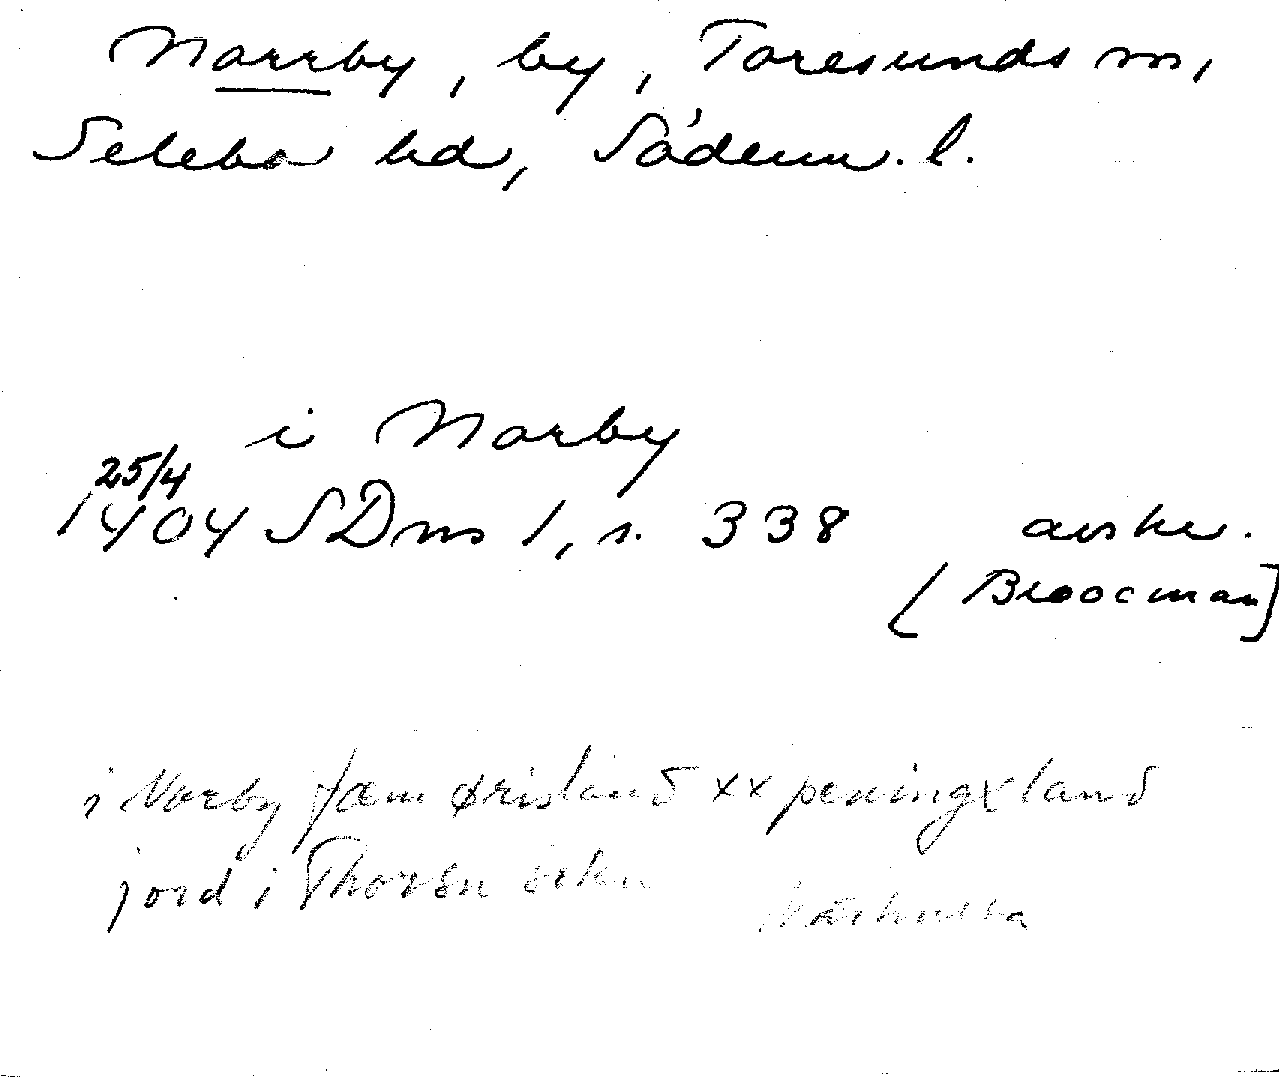 Norrby, by, Toresunds sn,
Selebo hd, Söderm. l.
i Norby
25/4
1404 SDns 1, s. 338 avskr.
[Broocman]
i Norby fæm ørisland xx peningxland
jord i Thorsn sokn